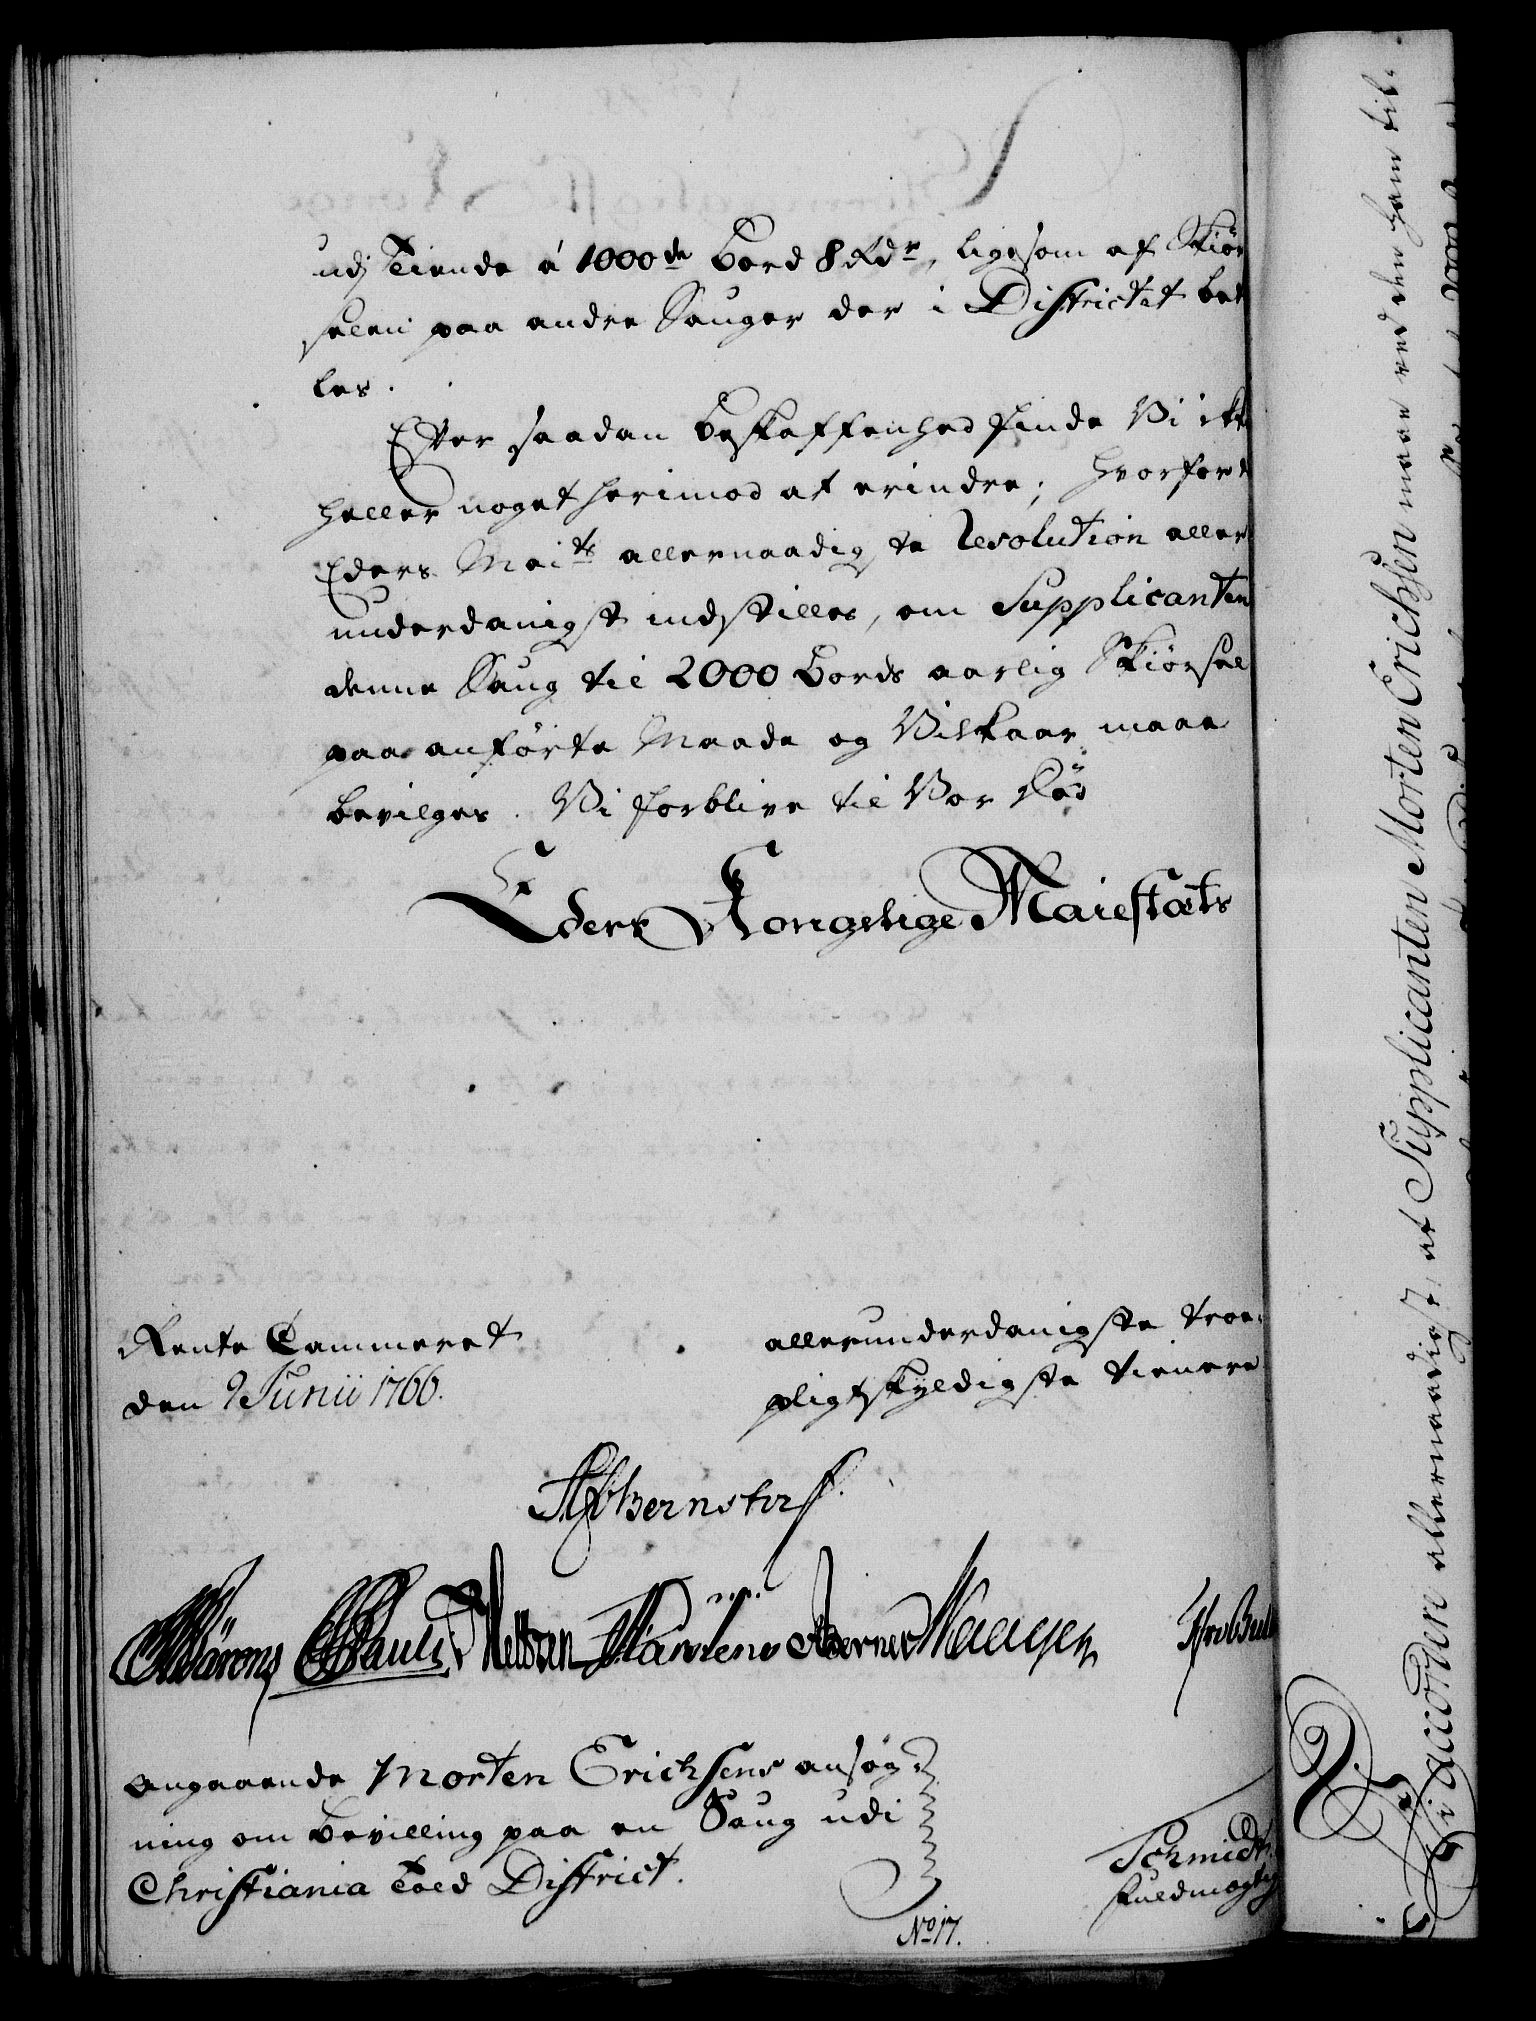 udj Tiende á 1000de Bord 8 Rdr, ligesom af Skiør
selen paa andre Sauger der i Districtet beta
les.
Efter saadan Beskaffenhed finde Vi ikke
heller noget herimod at erindre; hvorfor
Eders Maits allernaadigste Resolution aller
underdanigst indstilles, om Supplicanten
denne Saug til 2000 Bords aarlig Skiørsel
paa anførte Maade og Vilkaar maae
bevilges. Vi forblive til Vor Død
Eders Kongelige Maiestæts
Rente Cammeret
den 9 Junii 1766.
allerunderdanigste troe
pligtskyldigste tienere
Bernstorf
Pauli
Waagen
Angaaende Morten Erichsens ansøg
ning om Bevilling paa en Saug udi
Christiania Told District.
Schmidt
fuldmægtig
No 17.
Vi accordere allernaadigst, at Supplicanten Morten Erichsen maae ved den ham til